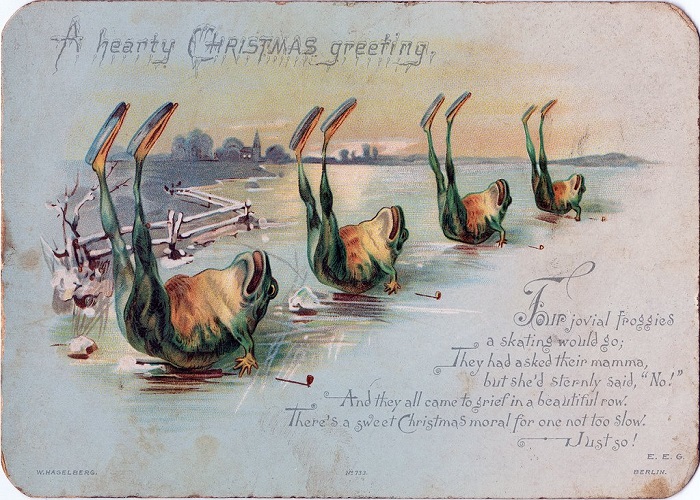 A hearty CHRISTMAS greeting.
Four jovial froggies
a skating would go;
They had asked their mamma,
but she'd sternly said, "No!"
And they all came to grief in a beautiful row.
There's a sweet Christmas moral for one not too slow.
Just so!
E. E. G.
W. HAGELBERG.
No 733.
BERLIN.